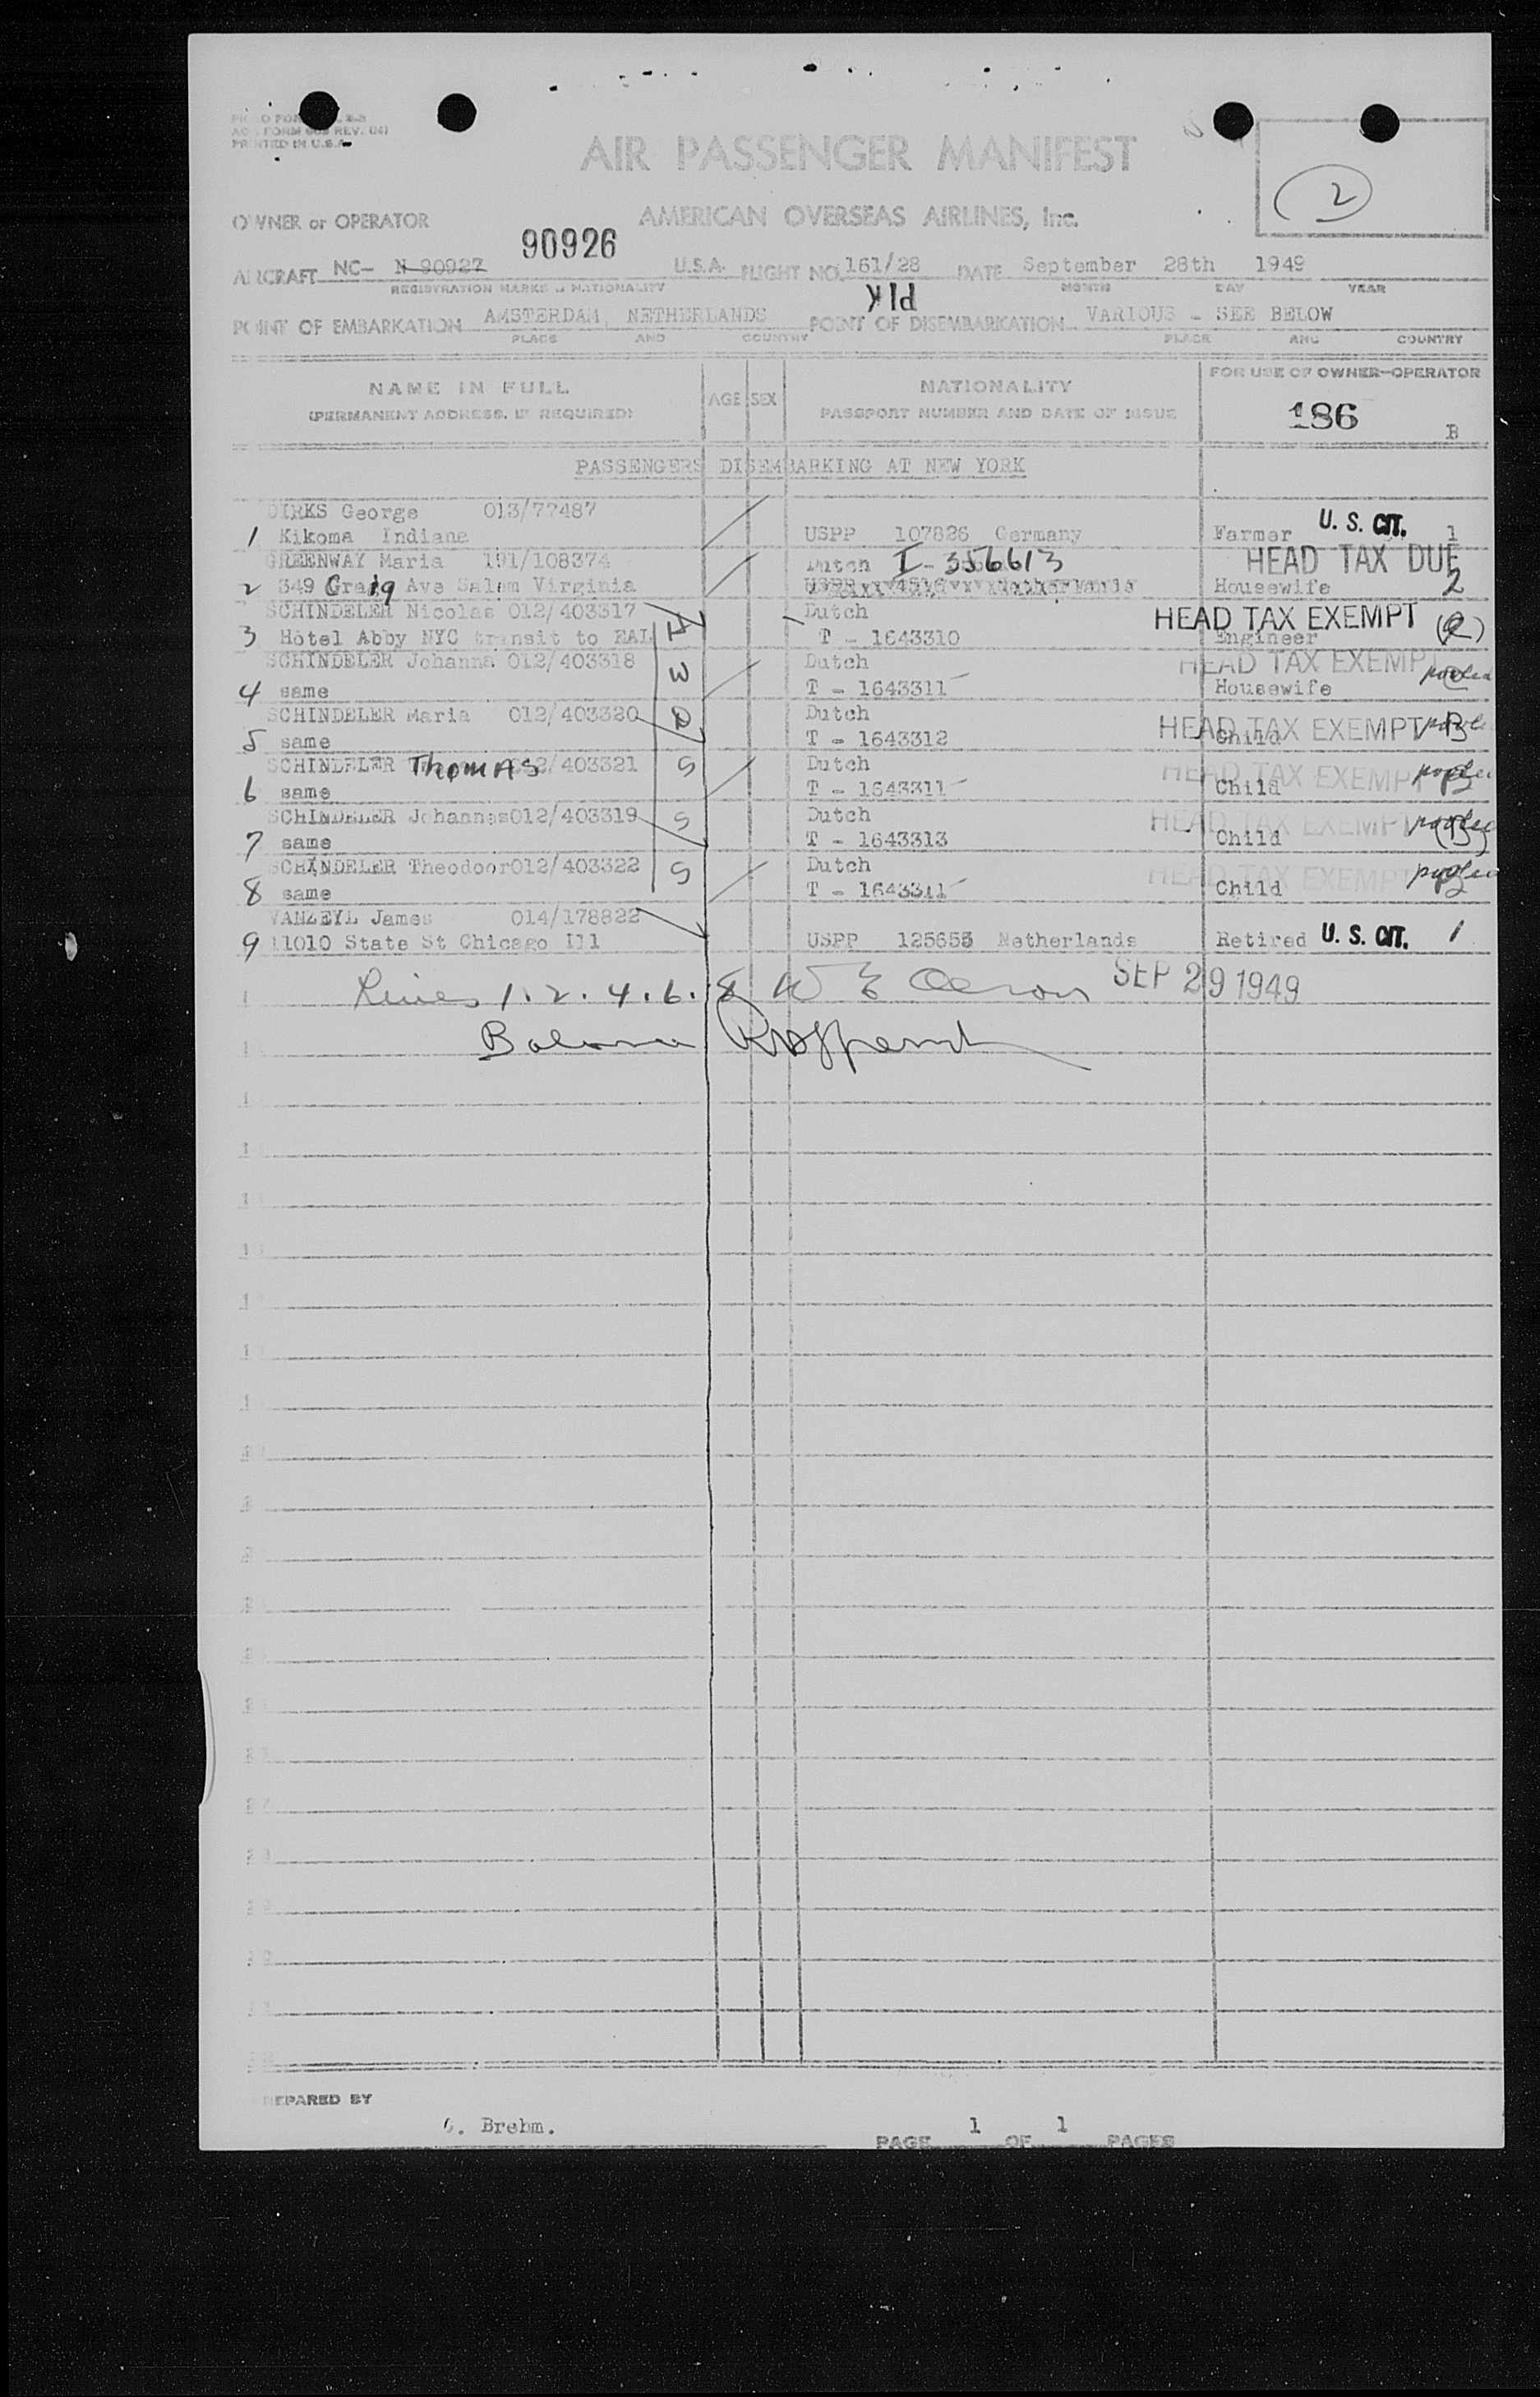 PRINTED IN U.S.A.
AIR PASSENGER MANIFEST
2
OWNER or OPERATOR AMERICAN OVERSEAS AIRLINES, Inc.
90926
AIRCRAFT NC- N 90927 U.S.A. FLIGHT NO. 161/28 DATE September 28th 1949
REGISTRATION MARKS & NATIONALITY MONTH DAY YEAR
POINT OF EMBARKATION AMSTERDAM, NETHERLANDS POINT OF DISEMBARKATION VARIOUS - SEE BELOW
PLACE AND COUNTRY PLACE AND COUNTRY
NAME IN FULL AGE SEX NATIONALITY FOR USE OF OWNER-OPERATOR
(PERMANENT ADDRESS, IF REQUIRED) PASSPORT NUMBER AND DATE OF ISSUE 186 B
PASSENGERS DISEMBARKING AT NEW YORK
DIRKS George 013/77487
1 Kikoma Indiana USPP 107826 Germany Farmer U. S. CIT. 1
GREENWAY Maria 191/108374 Dutch I-356613 HEAD TAX DUE
2 349 Craig Ave Salem Virginia Housewife 2
SCHINDELER Nicolas 012/403317 H Dutch HEAD TAX EXEMPT
3 Hotel Abby NYC transit to EAL T - 1643310 Engineer
SCHINDELER Johanna 012/403318 W Dutch HEAD TAX EXEMPT
4 same T - 1643311 Housewife
SCHINDELER Maria 012/403320 D Dutch HEAD TAX EXEMPT
5 same T - 1643312 Child
SCHINDELER Thomas 012/403321 S Dutch HEAD TAX EXEMPT
6 same T - 1643311 Child
SCHINDELER Johannes012/403319 S Dutch HEAD TAX EXEMPT
7 same T - 1643313 Child
SCHINDELER Theodoor012/403322 S Dutch HEAD TAX EXEMPT
8 same T - 1643311 Child
VANZEYL James 014/178822
9 11010 State St Chicago Ill USPP 125653 Netherlands Retired U. S. CIT. 1
Lines 1. 2. 4. 6. 8 SEP 29 1949
PREPARED BY
Brehm.
PAGE 1 OF 1 PAGES